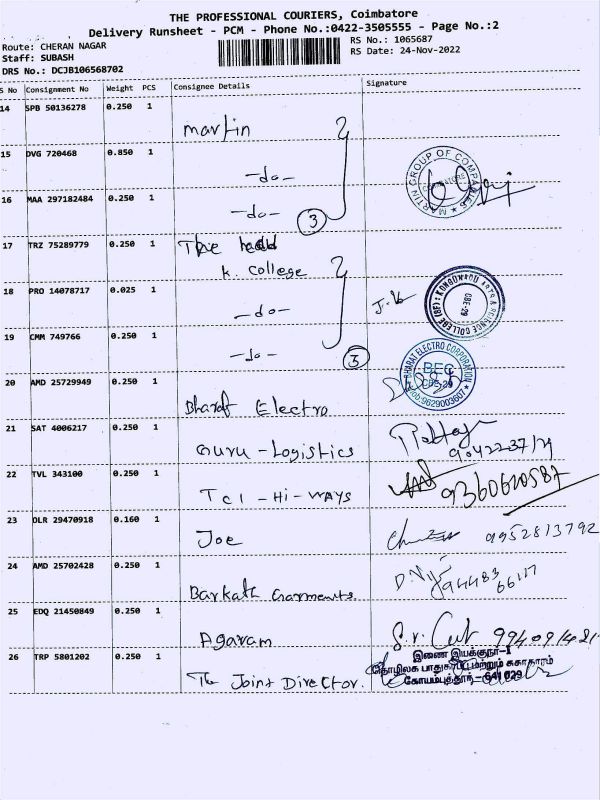 THE PROFESSIONAL COURIERS, Coimbatore
Delivery Runsheet - PCM - Phone No.:0422-3505555 - Page No.:2
Route: CHERAN NAGAR
RS No.: 1065687
Staff: SUBASH
RS Date: 24-Nov-2022
DRS No.: DCJB106568702
S No Consignment No Weight PCS Consignee Details Signature
14 SPB 50136278 0.250 1
Martin
15 DVG 720468 0.850 1
-do-
MARTIN GROUP OF COMPANIES
16 MAA 297182484 0.250 1
-do-
3
17 TRZ 75289779 0.250 1
The head
k. college
18 PRO 14078717 0.025 1
-do-
19 CMM 749766 0.250 1
-do-
3
BHARAT ELECTRO CORPORATION
BEC
CBE-29
20 AMD 25729949 0.250 1
Bharat Electro
21 SAT 4006217 0.250 1
Guru - Logistics
22 TVL 343100 0.250 1
TCI - Hi - WAYS
9360620587
23 DLR 29470918 0.160 1
Joe
9952813792
24 AMD 25702428 0.250 1
Barkath Garments.
25 EDQ 21450849 0.250 1
Agaram
26 TRP 5801202 0.250 1
The Joint Director.
இணை இயக்குநர்-I
கோயம்புத்தூர் - 641 029